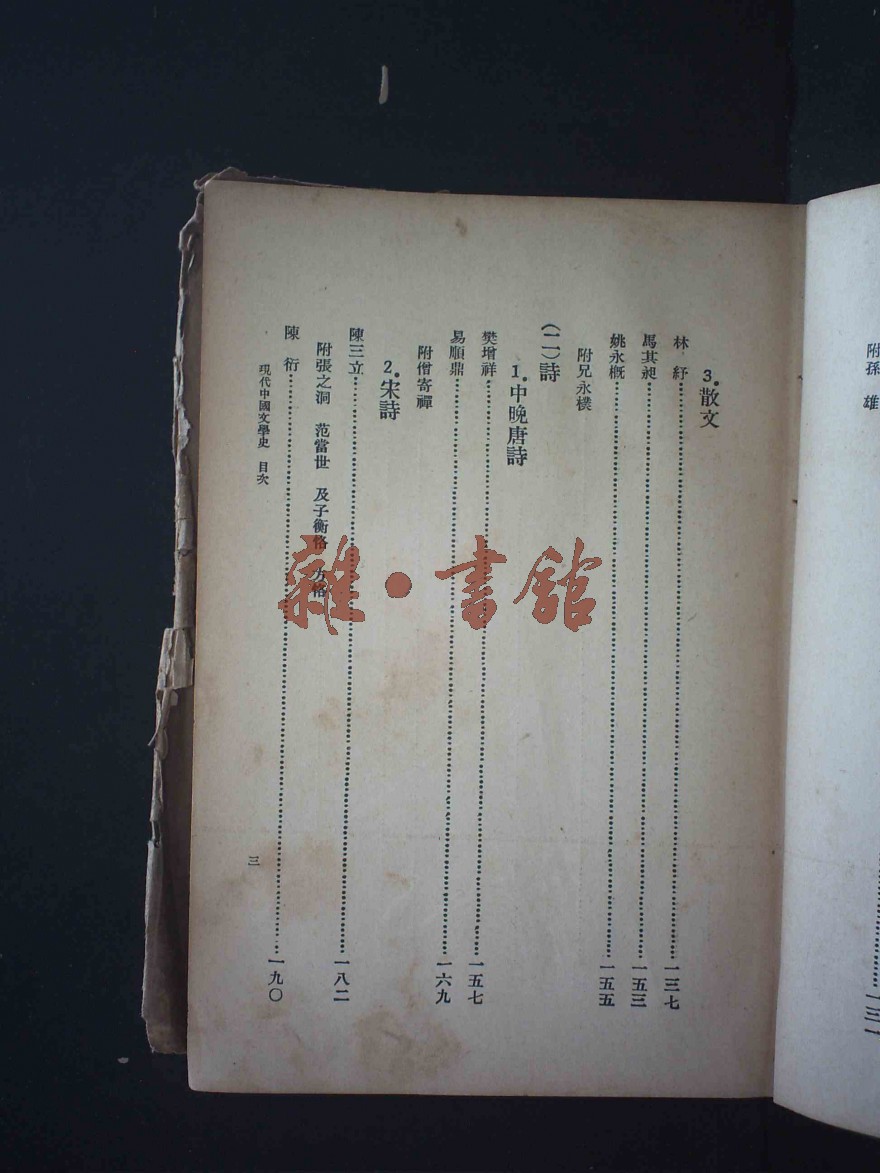 附孫　雄
一三一
3．散文
林　紓……一三七
馬其昶……一五三
姚永概……一五五
附兄永樸
（二）詩
1．中晚唐詩
樊增祥……一五七
易順鼎……一六九
附僧寄禪
2．宋詩
陳三立……一八二
附張之洞　范當世　及子衡恪　方恪
陳　衍……一九〇
現代中國文學史　目次
三
雜·書館